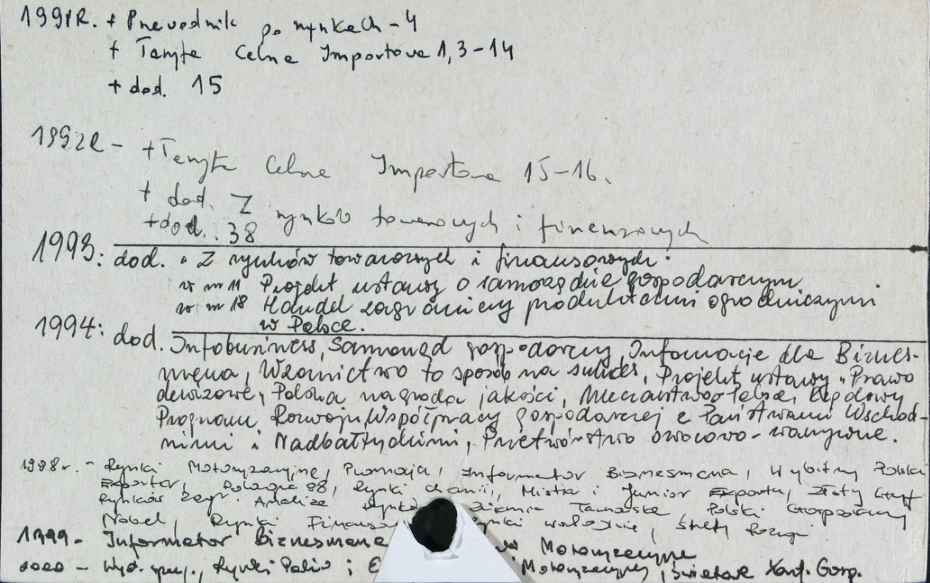 1991R. + Przewodnik po rynkach - 4
+ Taryfa Celna Importowa 1, 3-14
+ dod. 15
1992R - + Taryfa Celna Importowa 15-16.
+ dod. Z rynków towarowych i finansowych
+ dod. 38
1993: dod. "Z rynków towarowych i finansowych.
w nr 11 Projekt ustawy o samorządzie gospodarczym
w nr 18 Handel zagraniczny produktami ogrodniczymi
w Polsce.
1994: dod. Infobusiness, Samorząd gospodarczy, Informacje dla Biznes-
mena, Wzornictwo to sposób na sukces, Projekt ustawy "Prawo
dewizowe", Polska nagroda jakości,
Program Rozwoju Współpracy gospodarczej z Państwami Wschod-
nimi i Nadbałtyckimi, Przetwórstwo owocowo-warzywne.
1998r. - Rynki Motoryzacyjne, Promocja, Informator Biznesmena, Wybitny Polski
Exporter, 98, Rynki Mistrz i Junior Exportu, Złoty
Rynków Zagr. Analiza Polski Gospodarczy
Nobel, Rynki
1999 - Informator Biznesmena Motoryzacyjne
Rynki Paliw i Motoryzacyjne, Gosp.